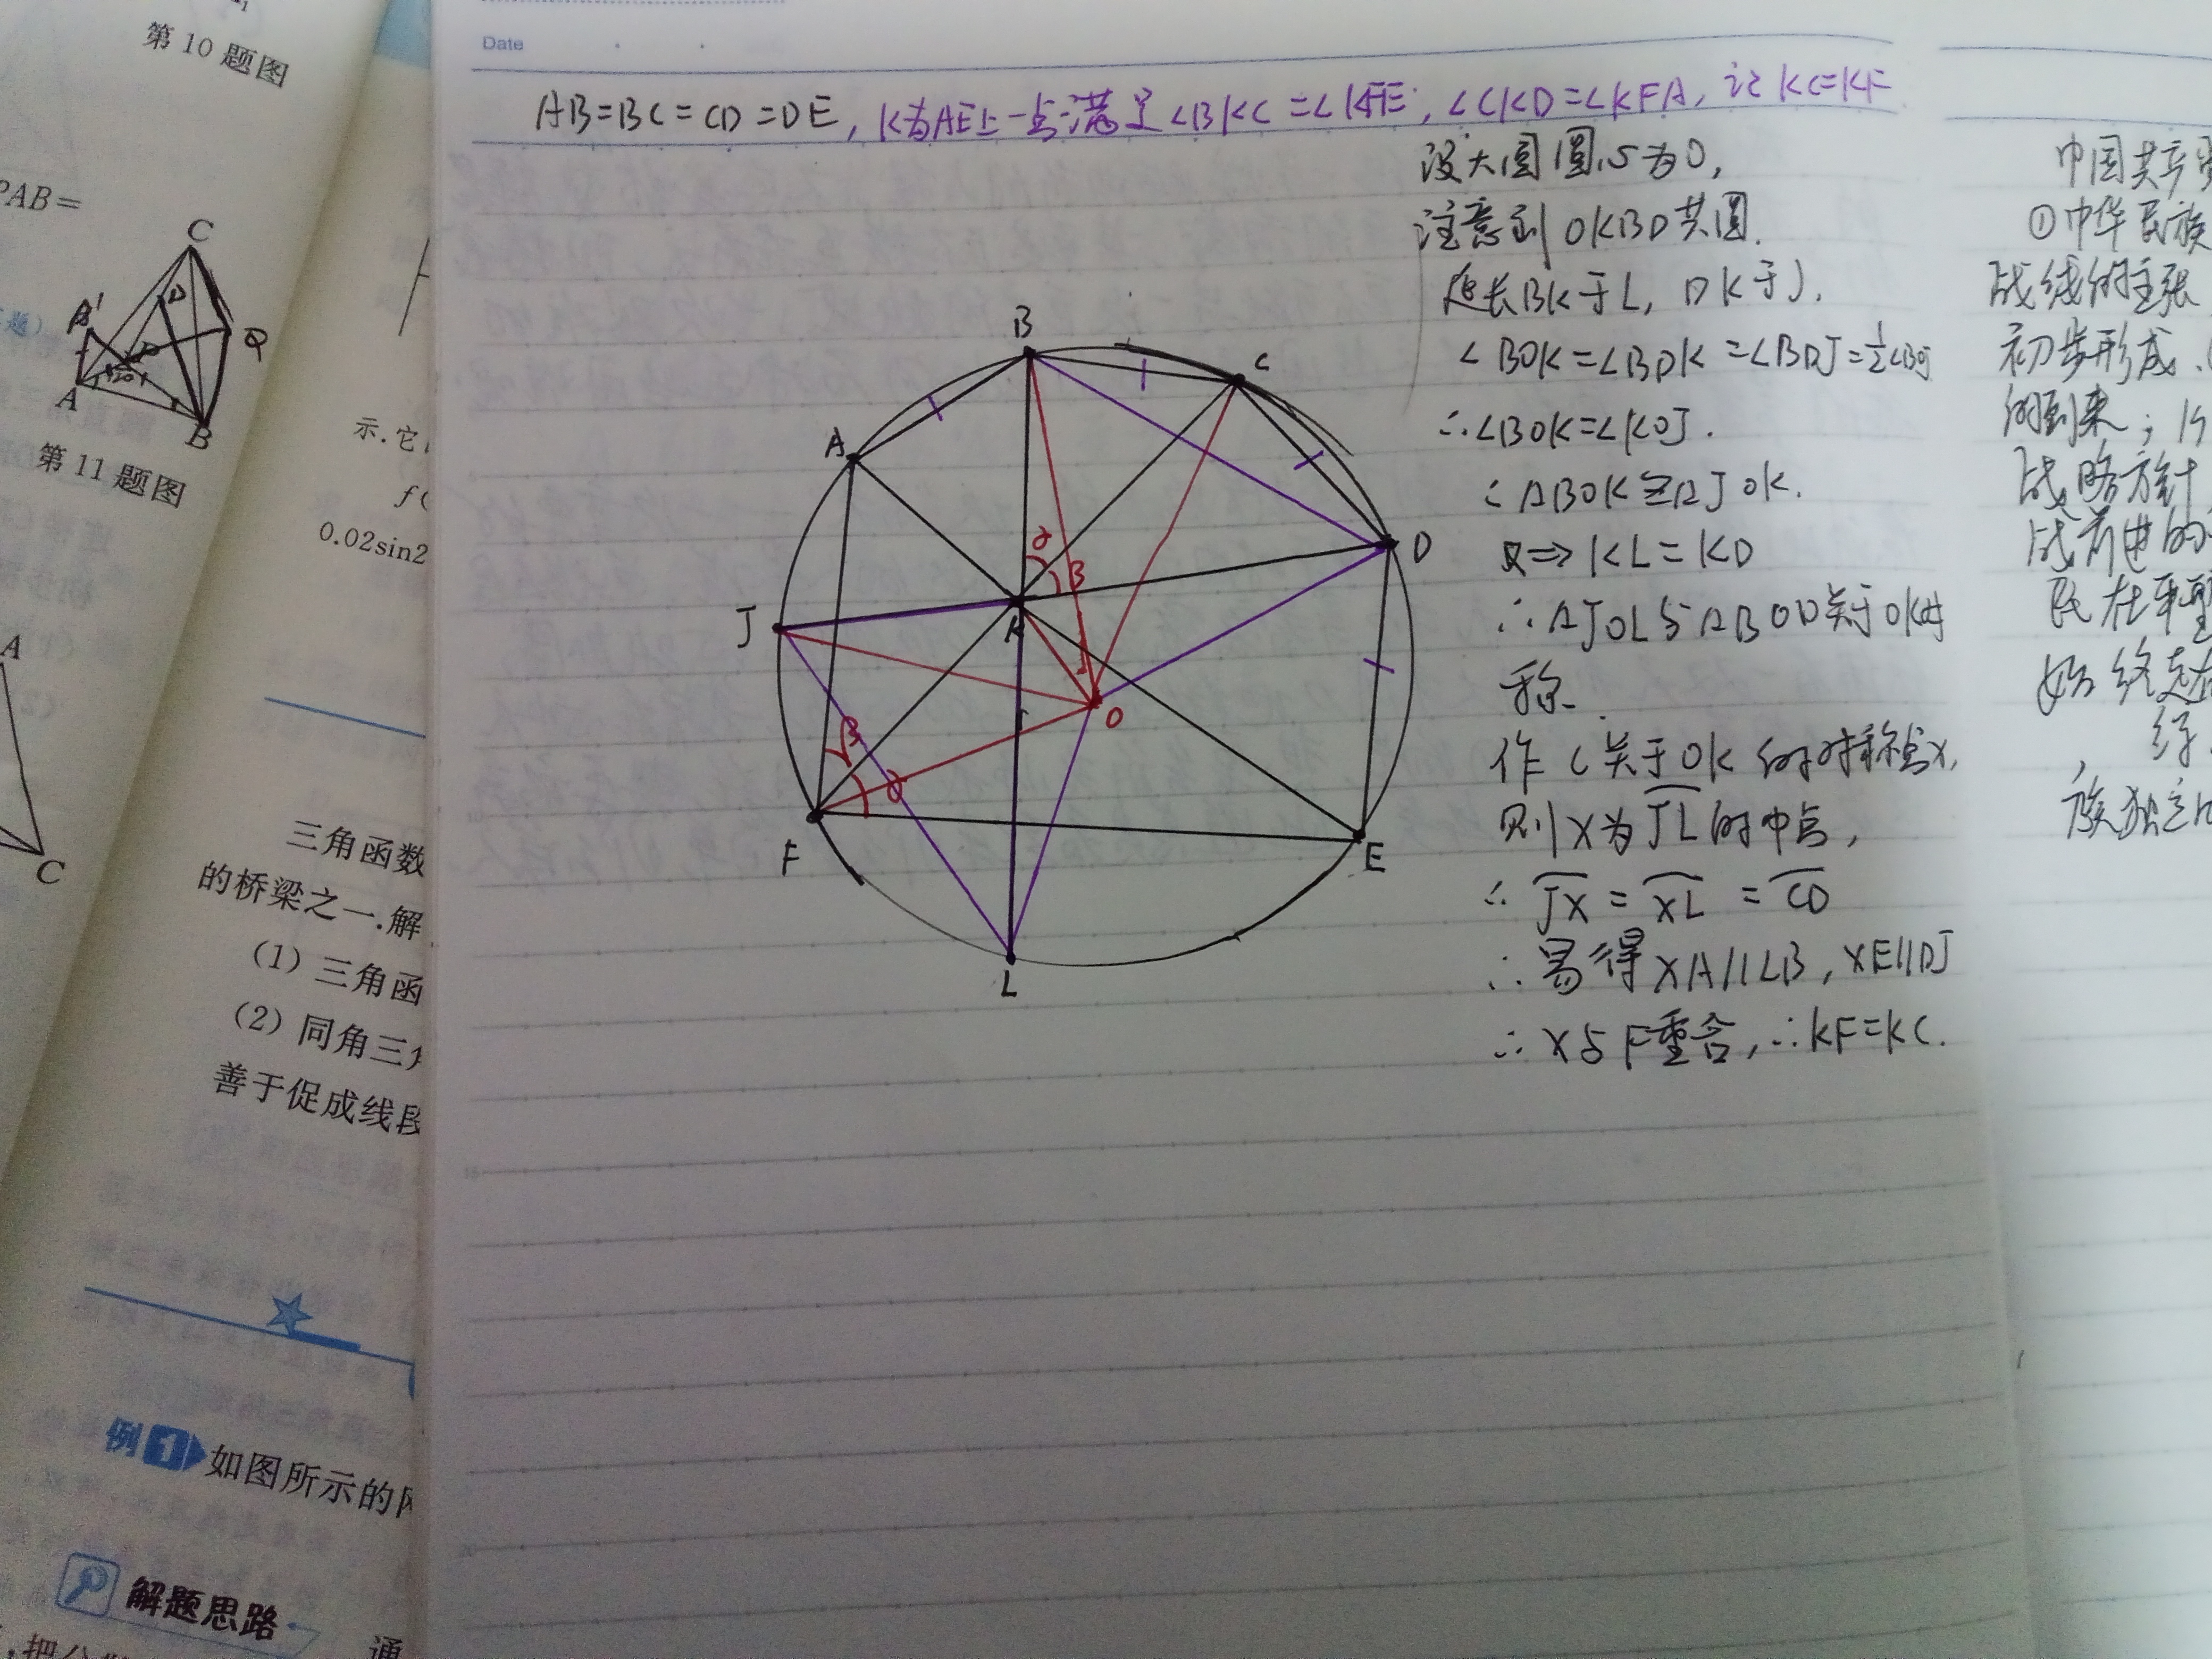 第10题图
PAB=
C
A'
D
Q
A
B
第11题图
示.它
f(
0.02sin2
A
C
三角函数
的桥梁之一.解
(1)三角函
(2)同角三角
善于促成线段
例1 如图所示的
解题思路
通
,把
Date
AB=BC=CD=DE,K为AE上一点满足∠BKC=∠KFE,∠CKD=∠KFA,证KC=KF
设大圆圆心为O,
注意到OKBD共圆.
延长BK于L,DK于J.
∠BOK=∠BDK=∠BDJ=½∠BOJ
∴∠BOK=∠KOJ.
∴△BOK≌△JOK.
⇒KL=KD
∴△JOL与△BOD关于OK对
称.
作C关于OK的对称点X,
则X为JL的中点,
∴JX=XL=CD
∴易得XA//LB,XE//DJ
∴X与F重合,∴KF=KC.
B
C
A
D
α
β
J
K
O
β
α
F
E
L
中国共产
①中华民族
战线的主张
初步形成.
的到来;
战略方针
族独立